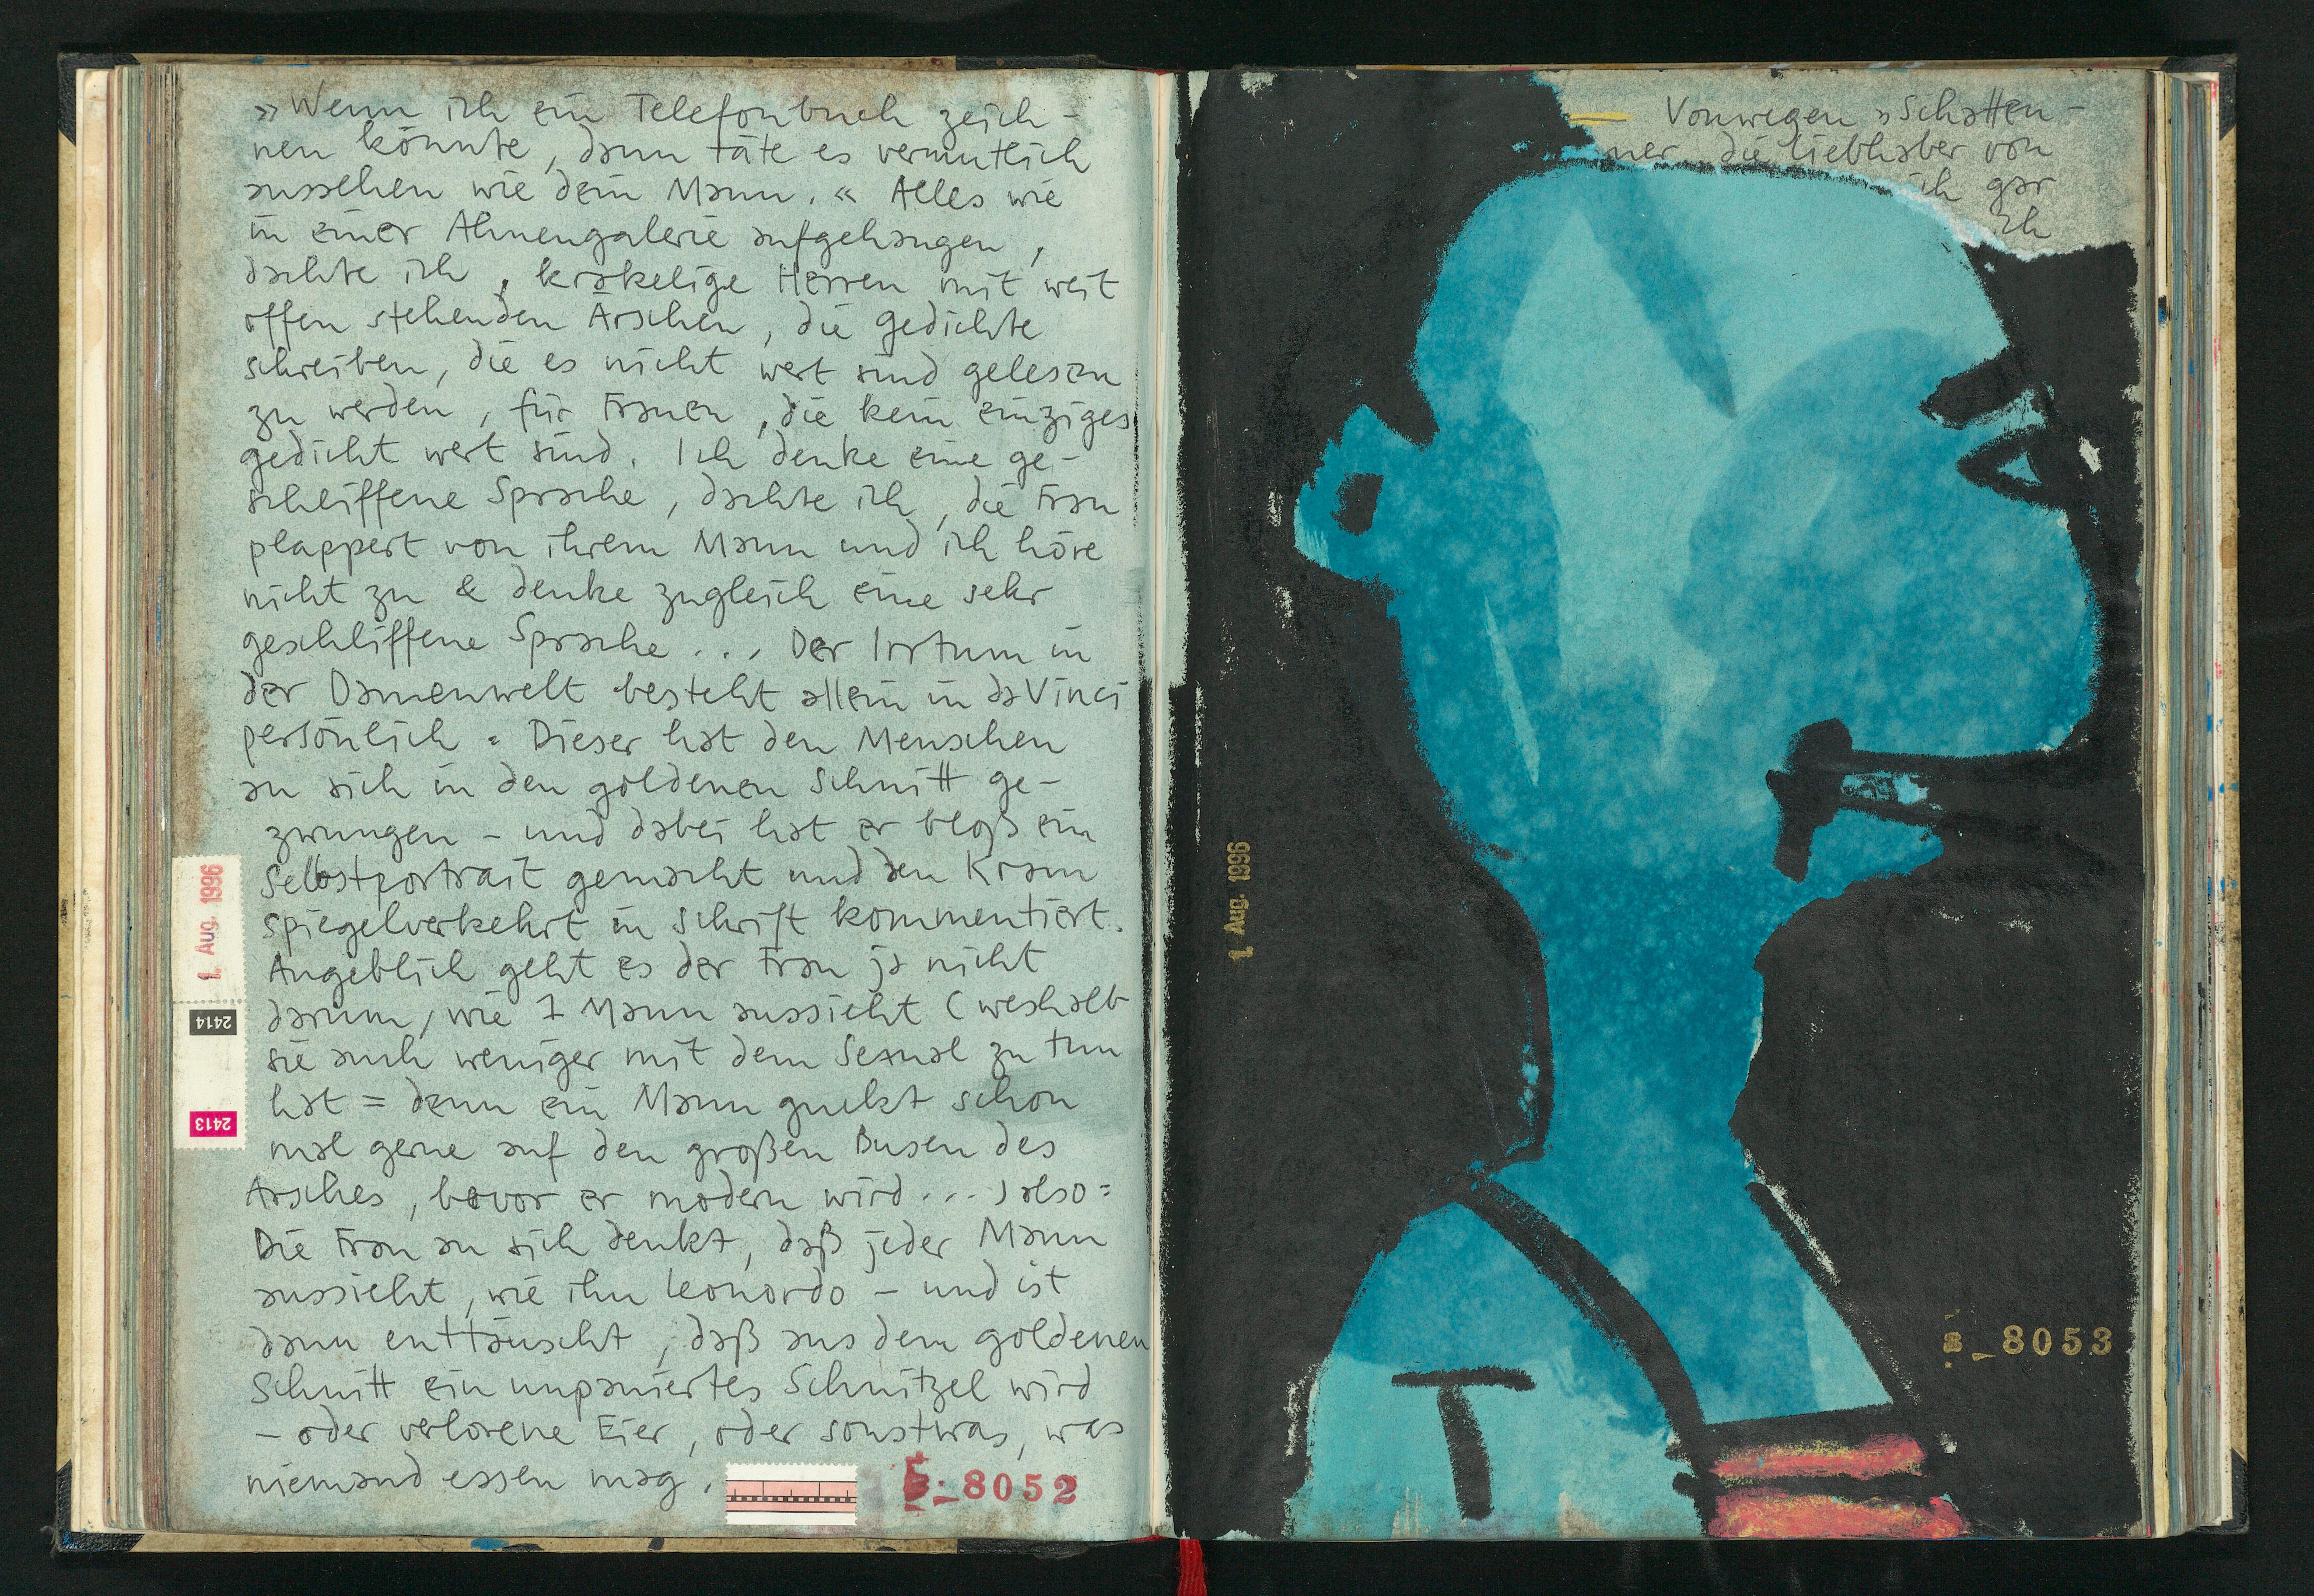 »Wenn ich ein Telefonbuch zeich-
nen könnte, dann täte es vermutlich
aussehen wie dein Mann.« Alles wie
in einer Ahnengalerie aufgehangen,
dachte ich, krakelige Herren mit weit
offen stehenden Ärschen, die gedichte
schreiben, die es nicht wert sind gelesen
zu werden, für Frauen, die kein einziges
gedicht wert sind. Ich denke eine ge-
schliffene Sprache, dachte ich, die Frau
plappert von ihrem Mann und ich höre
nicht zu & denke zugleich eine sehr
geschliffene Sprache ... Der Irrtum in
der Damenwelt besteht allein in daVinci
persönlich: Dieser hat den Menschen
an sich in den goldenen Schnitt ge-
zwungen – und dabei hat er bloß ein
Selbstportrait gemacht und den Kram
spiegelverkehrt in Schrift kommentiert.
Angeblich geht es der Frau ja nicht
darum, wie 1 Mann aussieht (weshalb
sie auch weniger mit dem Sexual zu tun
hat = denn ein Mann guckt schon
mal gerne auf den großen Busen des
Arsches, bevor er modern wird...) also:
Die Frau an sich denkt, daß jeder Mann
aussieht, wie ihn Leonardo – und ist
dann enttäuscht, daß aus dem goldenen
Schnitt ein unpaniertes Schnitzel wird
– oder verlorene Eier, oder sonstwas, was
niemand essen mag.
1. Aug. 1996
2414
2413
8052
Vonwegen »Schatten-
ner, die liebhaber von
ich gar
Ich
1. Aug. 1996
8053
T